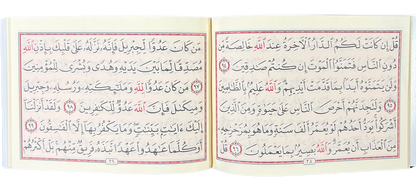 قُلْ إِن كَانَتْ لَكُمُ ٱلدَّارُ ٱلْءَاخِرَةُ عِندَ ٱللَّهِ خَالِصَةً مِّن
دُونِ ٱلنَّاسِ فَتَمَنَّوُا۟ ٱلْمَوْتَ إِن كُنتُمْ صَٰدِقِينَ ٩٤
وَلَن يَتَمَنَّوْهُ أَبَدًۢا بِمَا قَدَّمَتْ أَيْدِيهِمْ وَٱللَّهُ عَلِيمٌۢ بِٱلظَّٰلِمِينَ
٩٥ وَلَتَجِدَنَّهُمْ أَحْرَصَ ٱلنَّاسِ عَلَىٰ حَيَوٰةٍ وَمِنَ ٱلَّذِينَ
أَشْرَكُوا۟ يَوَدُّ أَحَدُهُمْ لَوْ يُعَمَّرُ أَلْفَ سَنَةٍ وَمَا هُوَ بِمُزَحْزِحِهِۦ
مِنَ ٱلْعَذَابِ أَن يُعَمَّرَ وَٱللَّهُ بَصِيرٌۢ بِمَا يَعْمَلُونَ ٩٦ قُلْ
٢٨
مَن كَانَ عَدُوًّا لِّجِبْرِيلَ فَإِنَّهُۥ نَزَّلَهُۥ عَلَىٰ قَلْبِكَ بِإِذْنِ ٱللَّهِ
مُصَدِّقًا لِّمَا بَيْنَ يَدَيْهِ وَهُدًى وَبُشْرَىٰ لِلْمُؤْمِنِينَ
٩٧ مَن كَانَ عَدُوًّا لِّلَّهِ وَمَلَٰٓئِكَتِهِۦ وَرُسُلِهِۦ وَجِبْرِيلَ
وَمِيكَىٰلَ فَإِنَّ ٱللَّهَ عَدُوٌّ لِّلْكَٰفِرِينَ ٩٨ وَلَقَدْ أَنزَلْنَآ
إِلَيْكَ ءَايَٰتٍۭ بَيِّنَٰتٍ وَمَا يَكْفُرُ بِهَآ إِلَّا ٱلْفَٰسِقُونَ ٩٩
أَوَكُلَّمَا عَٰهَدُوا۟ عَهْدًا نَّبَذَهُۥ فَرِيقٌ مِّنْهُم بَلْ أَكْثَرُهُمْ
٢٩